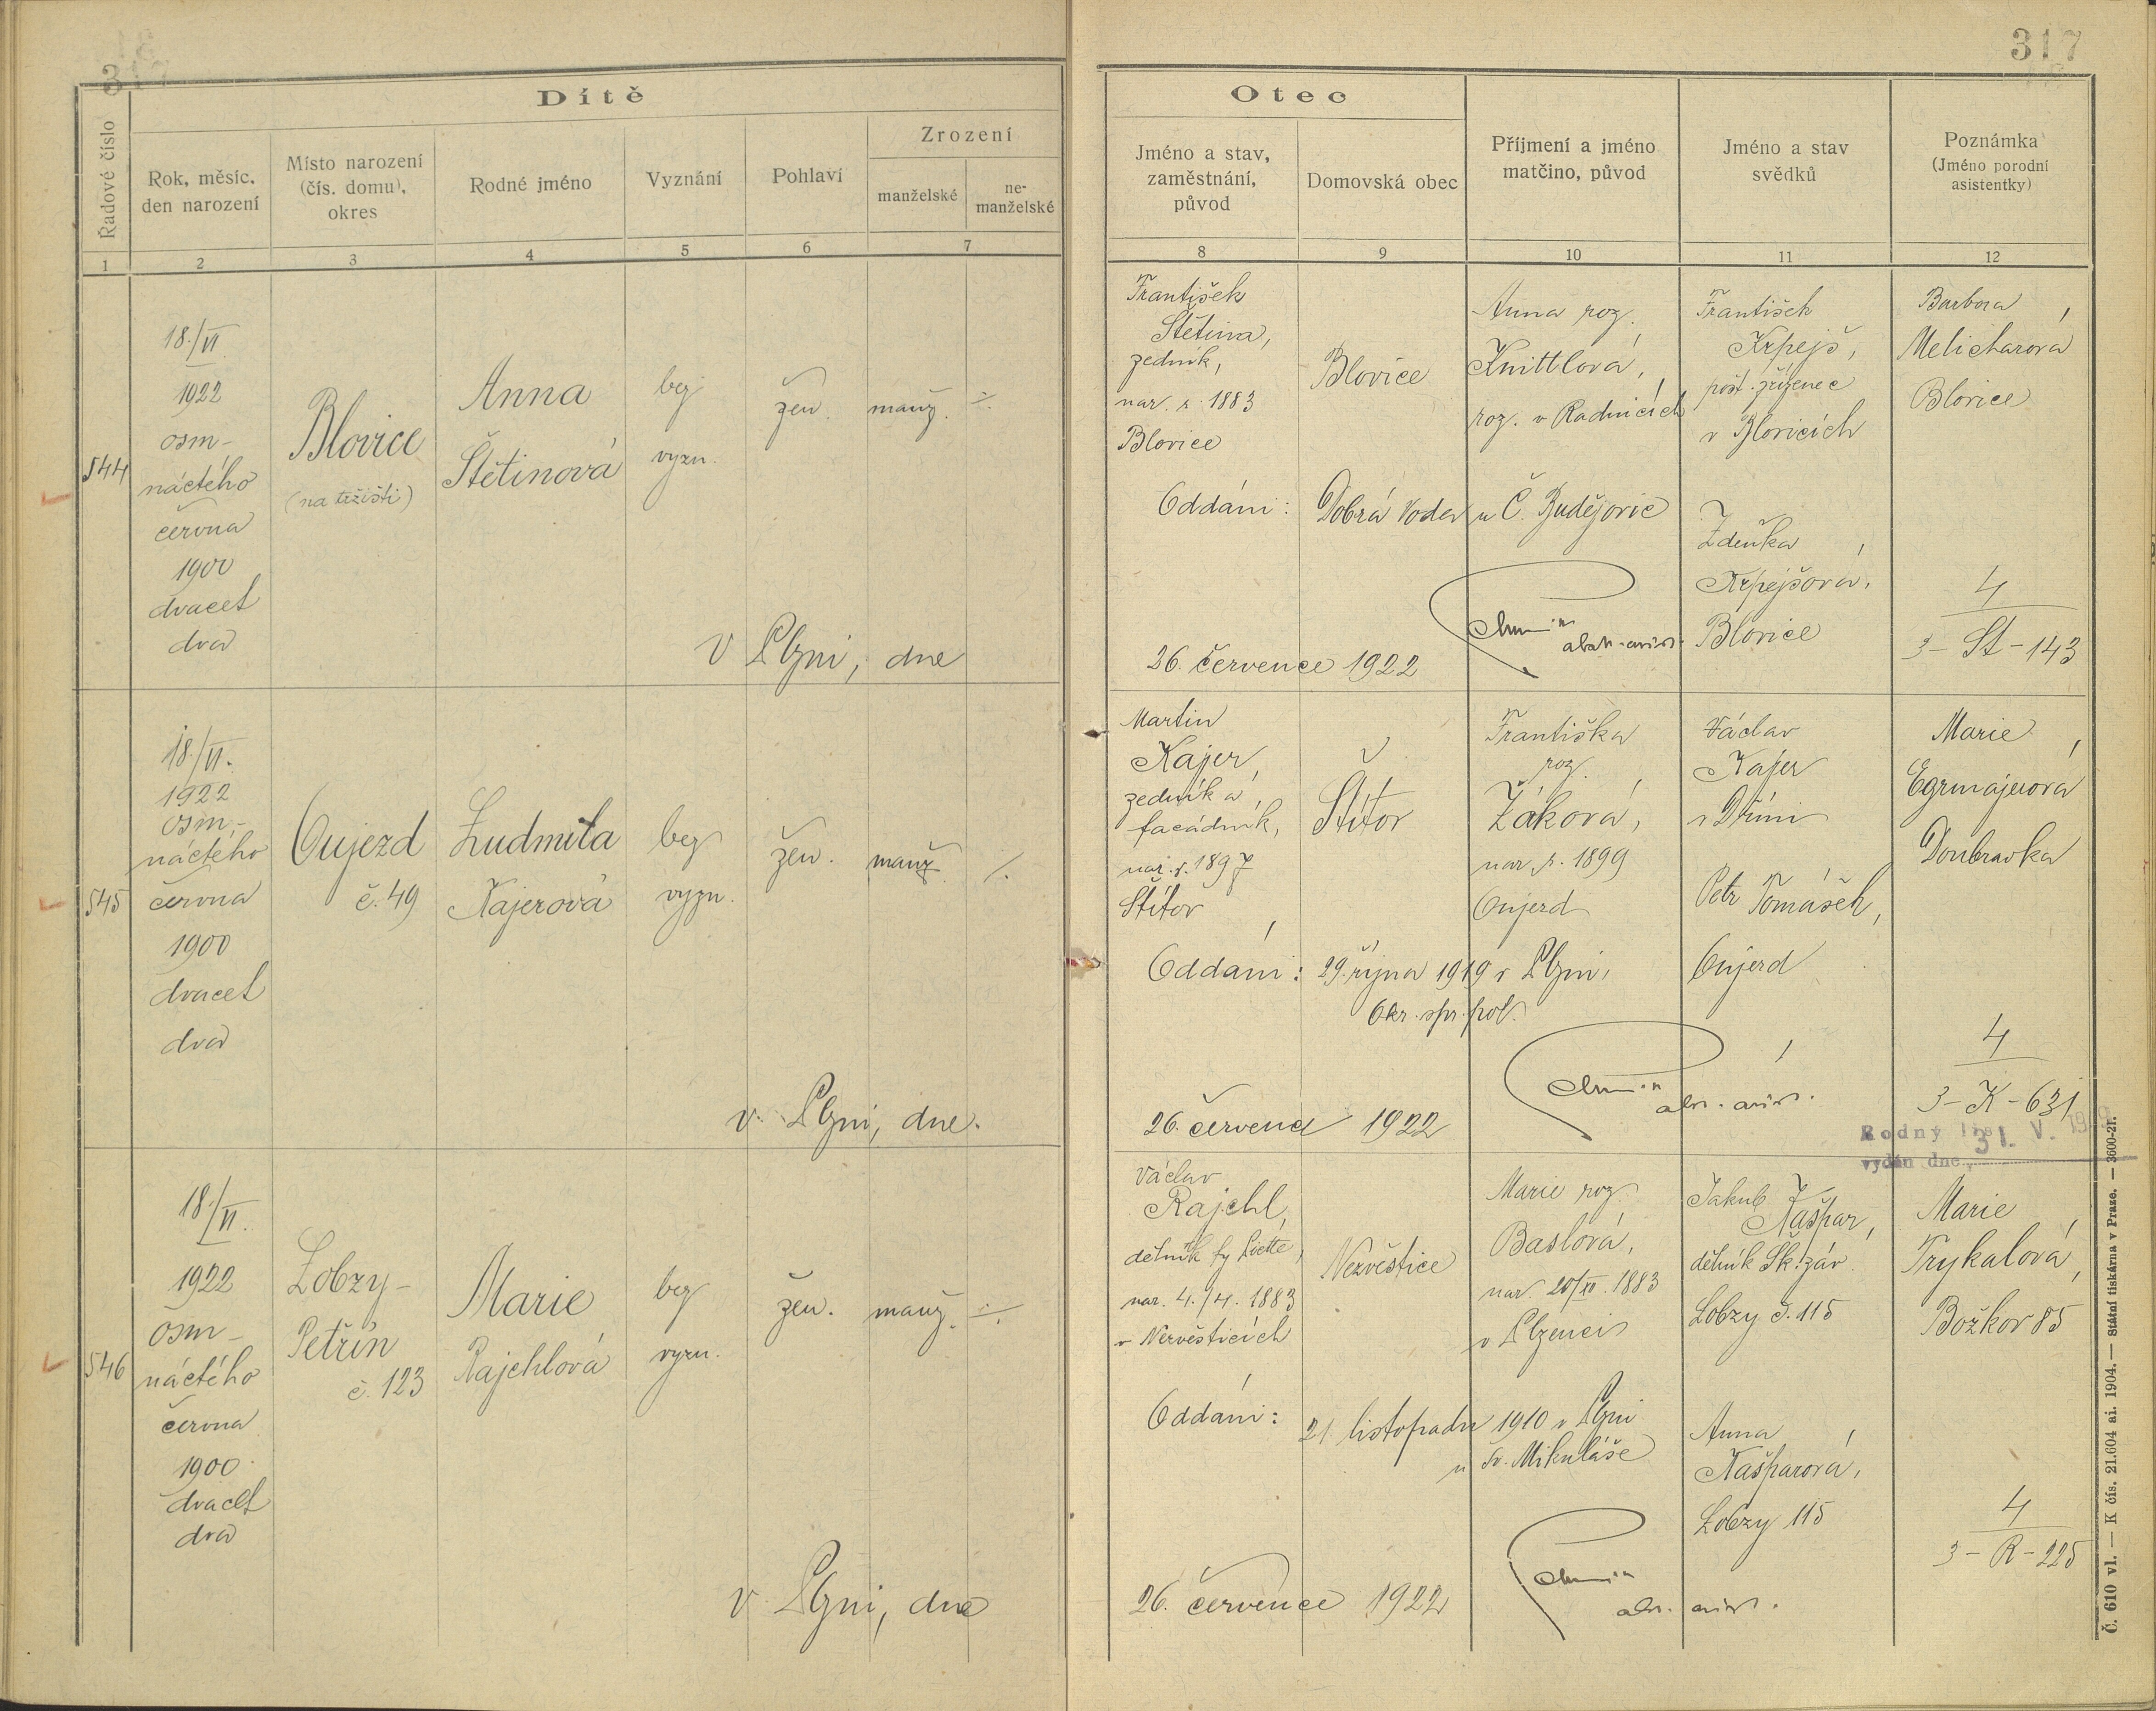 317
Dítě
Řadové číslo
Rok, měsíc,
den narození
Místo narození
(čís. domu),
okres
Rodné jméno
Vyznání
Pohlaví
Zrození
manželské
ne-
manželské
1 2 3 4 5 6 7
Otec
Jméno a stav,
zaměstnání,
původ
Domovská obec
Příjmení a jméno
matčino, původ
Jméno a stav
svědků
Poznámka
(Jméno porodní
asistentky)
8 9 10 11 12
544
18./VI.
1922
osm-
náctého
června
1900
dvacet
dva
Blovice
(na tržišti)
Anna
Štětinová
bez
vyzn.
žen.
manž.
V Plzni, dne
František
Štětina,
zedník,
nar. r. 1883
Blovice
Blovice
Anna roz.
Knittlová,
roz. v Radnicích
František
Krpejš,
pošt. zřízenec
v Blovicích
Zdeňka
Krpejšová,
Blovice
Barbora
Melicharová
Blovice
Oddáni: Dobrá Voda u Č. Budějovic
26. července 1922
4
3-St-143
545
18./VI.
1922
osm-
náctého
června
1900
dvacet
dva
Oujezd
č. 49
Ludmila
Kajerová
bez
vyzn.
žen.
manž.
v Plzni, dne.
Martin
Kajer,
zedník a
facádník,
nar. r. 1897
Štítov
Štítov
Františka
roz.
Žáková,
nar. r. 1899
Oujezd
Václav
Kajer
Petr Tomášek,
Oujezd
Marie
Egrmajerová
Doubravka
Oddáni: 29. října 1919 v Plzni,
Okr. spr. pol.
26. července 1922
4
3-K-631
Rodný list
vydán dne 31. V.
546
18./VI.
1922
osm-
náctého
června
1900
dvacet
dva
Lobzy-
Petřín
č. 123
Marie
Rajchlová
bez
vyzn.
žen.
manž.
v Plzni, dne
Václav
Rajchl,
dělník fy Piette,
nar. 4./4. 1883
v Nezvěsticích
Nezvěstice
Marie roz.
Baslová,
nar. 20/XI. 1883
v Plzenci
Jakub
Kašpar,
dělník Šk. záv.
Lobzy č. 115
Anna
Kašparová,
Lobzy 115
Marie
Trykalová,
Božkov 85
Oddáni: 21 listopadu 1910 v Plzni
u sv. Mikuláše
26. července 1922
4
3-R-225
Č. 610 vl. — K čís. 21.604 ai. 1904. — Státní tiskárna v Praze. — 3600-21.